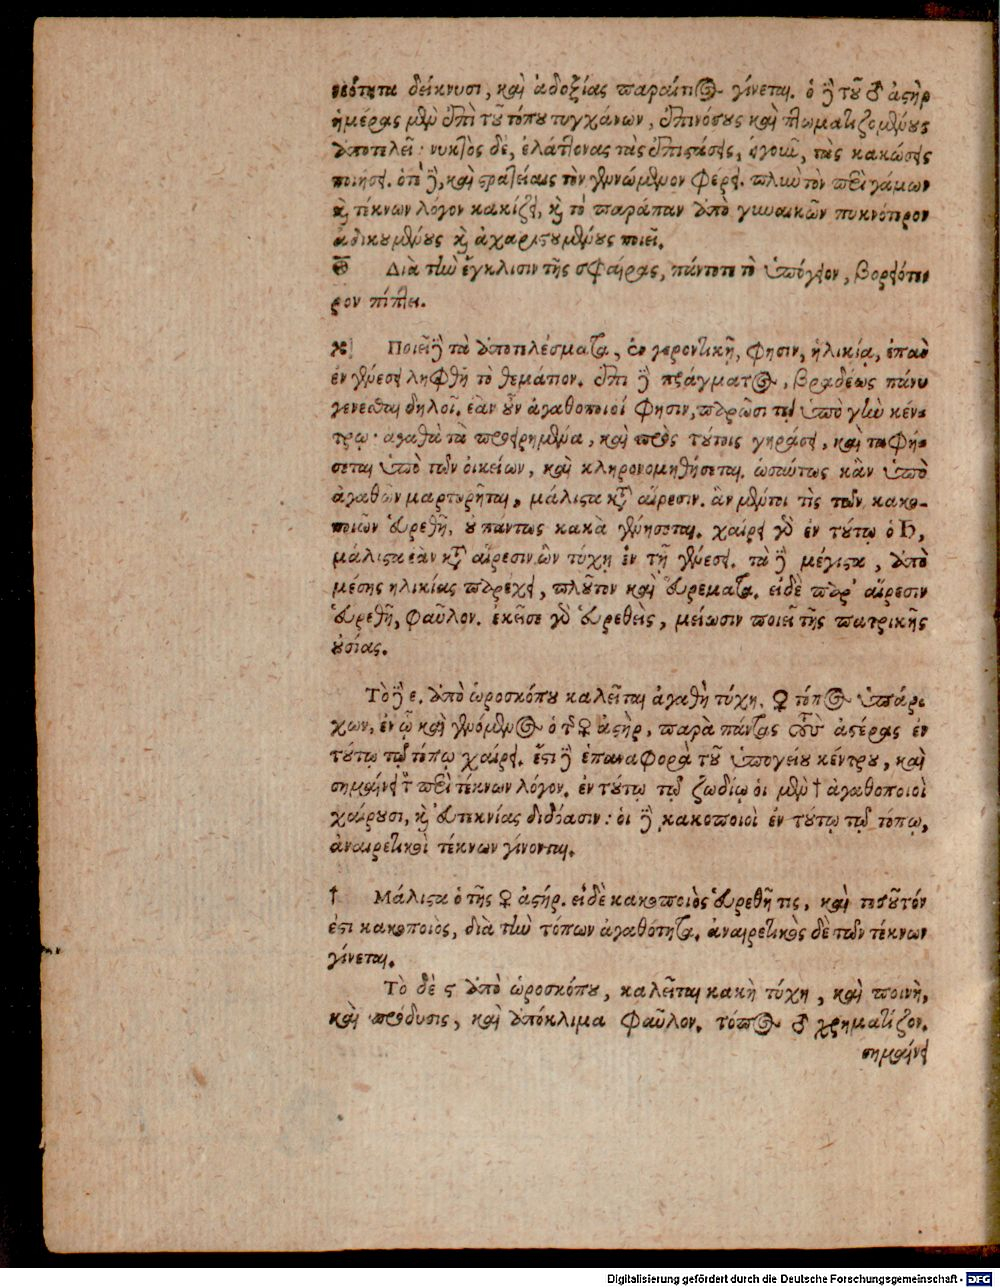 νεότητα δείκνυσι, καὶ ἀδοξίας παραίτιος γίνεται. ὁ δὲ τοῦ ♂ ἀστὴρ
ἡμέρας μὲν ἐπὶ τοῦ τόπου τυγχάνων, ἐπινόσους καὶ πτωματιζομένους
ἀποτελεῖ· νυκτὸς δὲ, ἐλάττονας τὰς ἐπιτάσεις, ἤγουν, τὰς κακώσεις
ποιήσει. ὁτὲ δὲ, καὶ στρατείαις τὸν γενώμενον φέρει. πλὴν τὸν περὶ γάμων
καὶ τέκνων λόγον κακίζει, καὶ τὸ παράπαν ἀπὸ γυναικῶν πυκνότερον
ἀδικουμένους καὶ ἀχαριστουμένους ποιεῖ.
Διὰ τὴν ἔγκλισιν τῆς σφαίρας, πάντοτε τὸ ὑπόγειον, βορειότε
ρον πίπτει.
Ποιεῖ δὲ τὰ ἀποτελέσματα, ἐν γεροντικῇ, φησιν, ἡλικίᾳ, ἐπὰν
ἐν γενέσει ληφθῇ τὸ θεμάτιον. ἐπὶ δὲ πράγματος, βραδέως πάνυ
γενέσθαι δηλοῖ. ἐὰν οὖν ἀγαθοποιοί φησιν, παρῶσι τῷ ὑπὸ γῆν κέν-
τρῳ· ἀγαθὰ τὰ προειρημένα, καὶ πρὸς τούτοις γηράσει, καὶ ταφή-
σεται ὑπὸ τῶν οἰκείων, καὶ κληρονομηθήσεται. ὡσαύτως κἂν ὑπὸ
ἀγαθῶν μαρτυρῆται, μάλιστα κατὰ αἵρεσιν. ἂν μέντοι τὶς τῶν κακο-
ποιῶν εὑρεθῇ, οὐ πάντως κακὰ γενήσεται. χαίρει γὰρ ἐν τούτῳ ὁ ♄,
μάλιστα ἐὰν κατὰ αἵρεσιν ὢν τύχῃ ἐν τῇ γενέσει. τὰ δὲ μέγιστα, ἀπὸ
μέσης ἡλικίας παρέχει, πλοῦτον καὶ εὑρέματα. εἰ δὲ παρ' αἵρεσιν
εὑρεθῇ, φαῦλον. ἐκεῖσε γὰρ εὑρεθεὶς, μείωσιν ποιεῖ τῆς πατρικῆς
οὐσίας.
Τὸ δὲ ε. ἀπὸ ὡροσκόπου καλεῖται ἀγαθὴ τύχη. ♀ τόπος ὑπάρ
χων, ἐν ᾧ καὶ γενόμενος ὁ τῆς ♀ ἀστὴρ, παρὰ πάντας τοὺς ἀστέρας ἐν
τούτῳ τῷ τόπῳ χαίρει. ἔστι δὲ ἐπαναφορὰ τοῦ ὑπογείου κέντρου, καὶ
σημαίνει τὸν περὶ τέκνων λόγον. ἐν τούτῳ τῷ ζωδίῳ οἱ μὲν † ἀγαθοποιοὶ
χαίρουσι, καὶ εὐτεκνίας διδόασιν: οἱ δὲ κακοποιοὶ ἐν τούτῳ τῷ τόπῳ,
ἀναιρετικοὶ τέκνων γίνονται.
† Μάλιστα ὁ τῆς ♀ ἀστήρ. εἰ δὲ κακοποιὸς εὑρεθῇ τις, καὶ τοιοῦτόν
ἐστι κακοποιὸς, διὰ τὴν τόπων ἀγαθότητα. ἀναιρετικὸς δὲ τῶν τέκνων
γίνεται.
Τὸ δὲ ϛ ἀπὸ ὡροσκόπου, καλεῖται κακὴ τύχη, καὶ ποινὴ,
καὶ πρόδυσις, καὶ ἀπόκλιμα φαῦλον. τόπος ♂ χρηματίζον.
σημαίνει
Digitalisierung gefördert durch die Deutsche Forschungsgemeinschaft - DFG